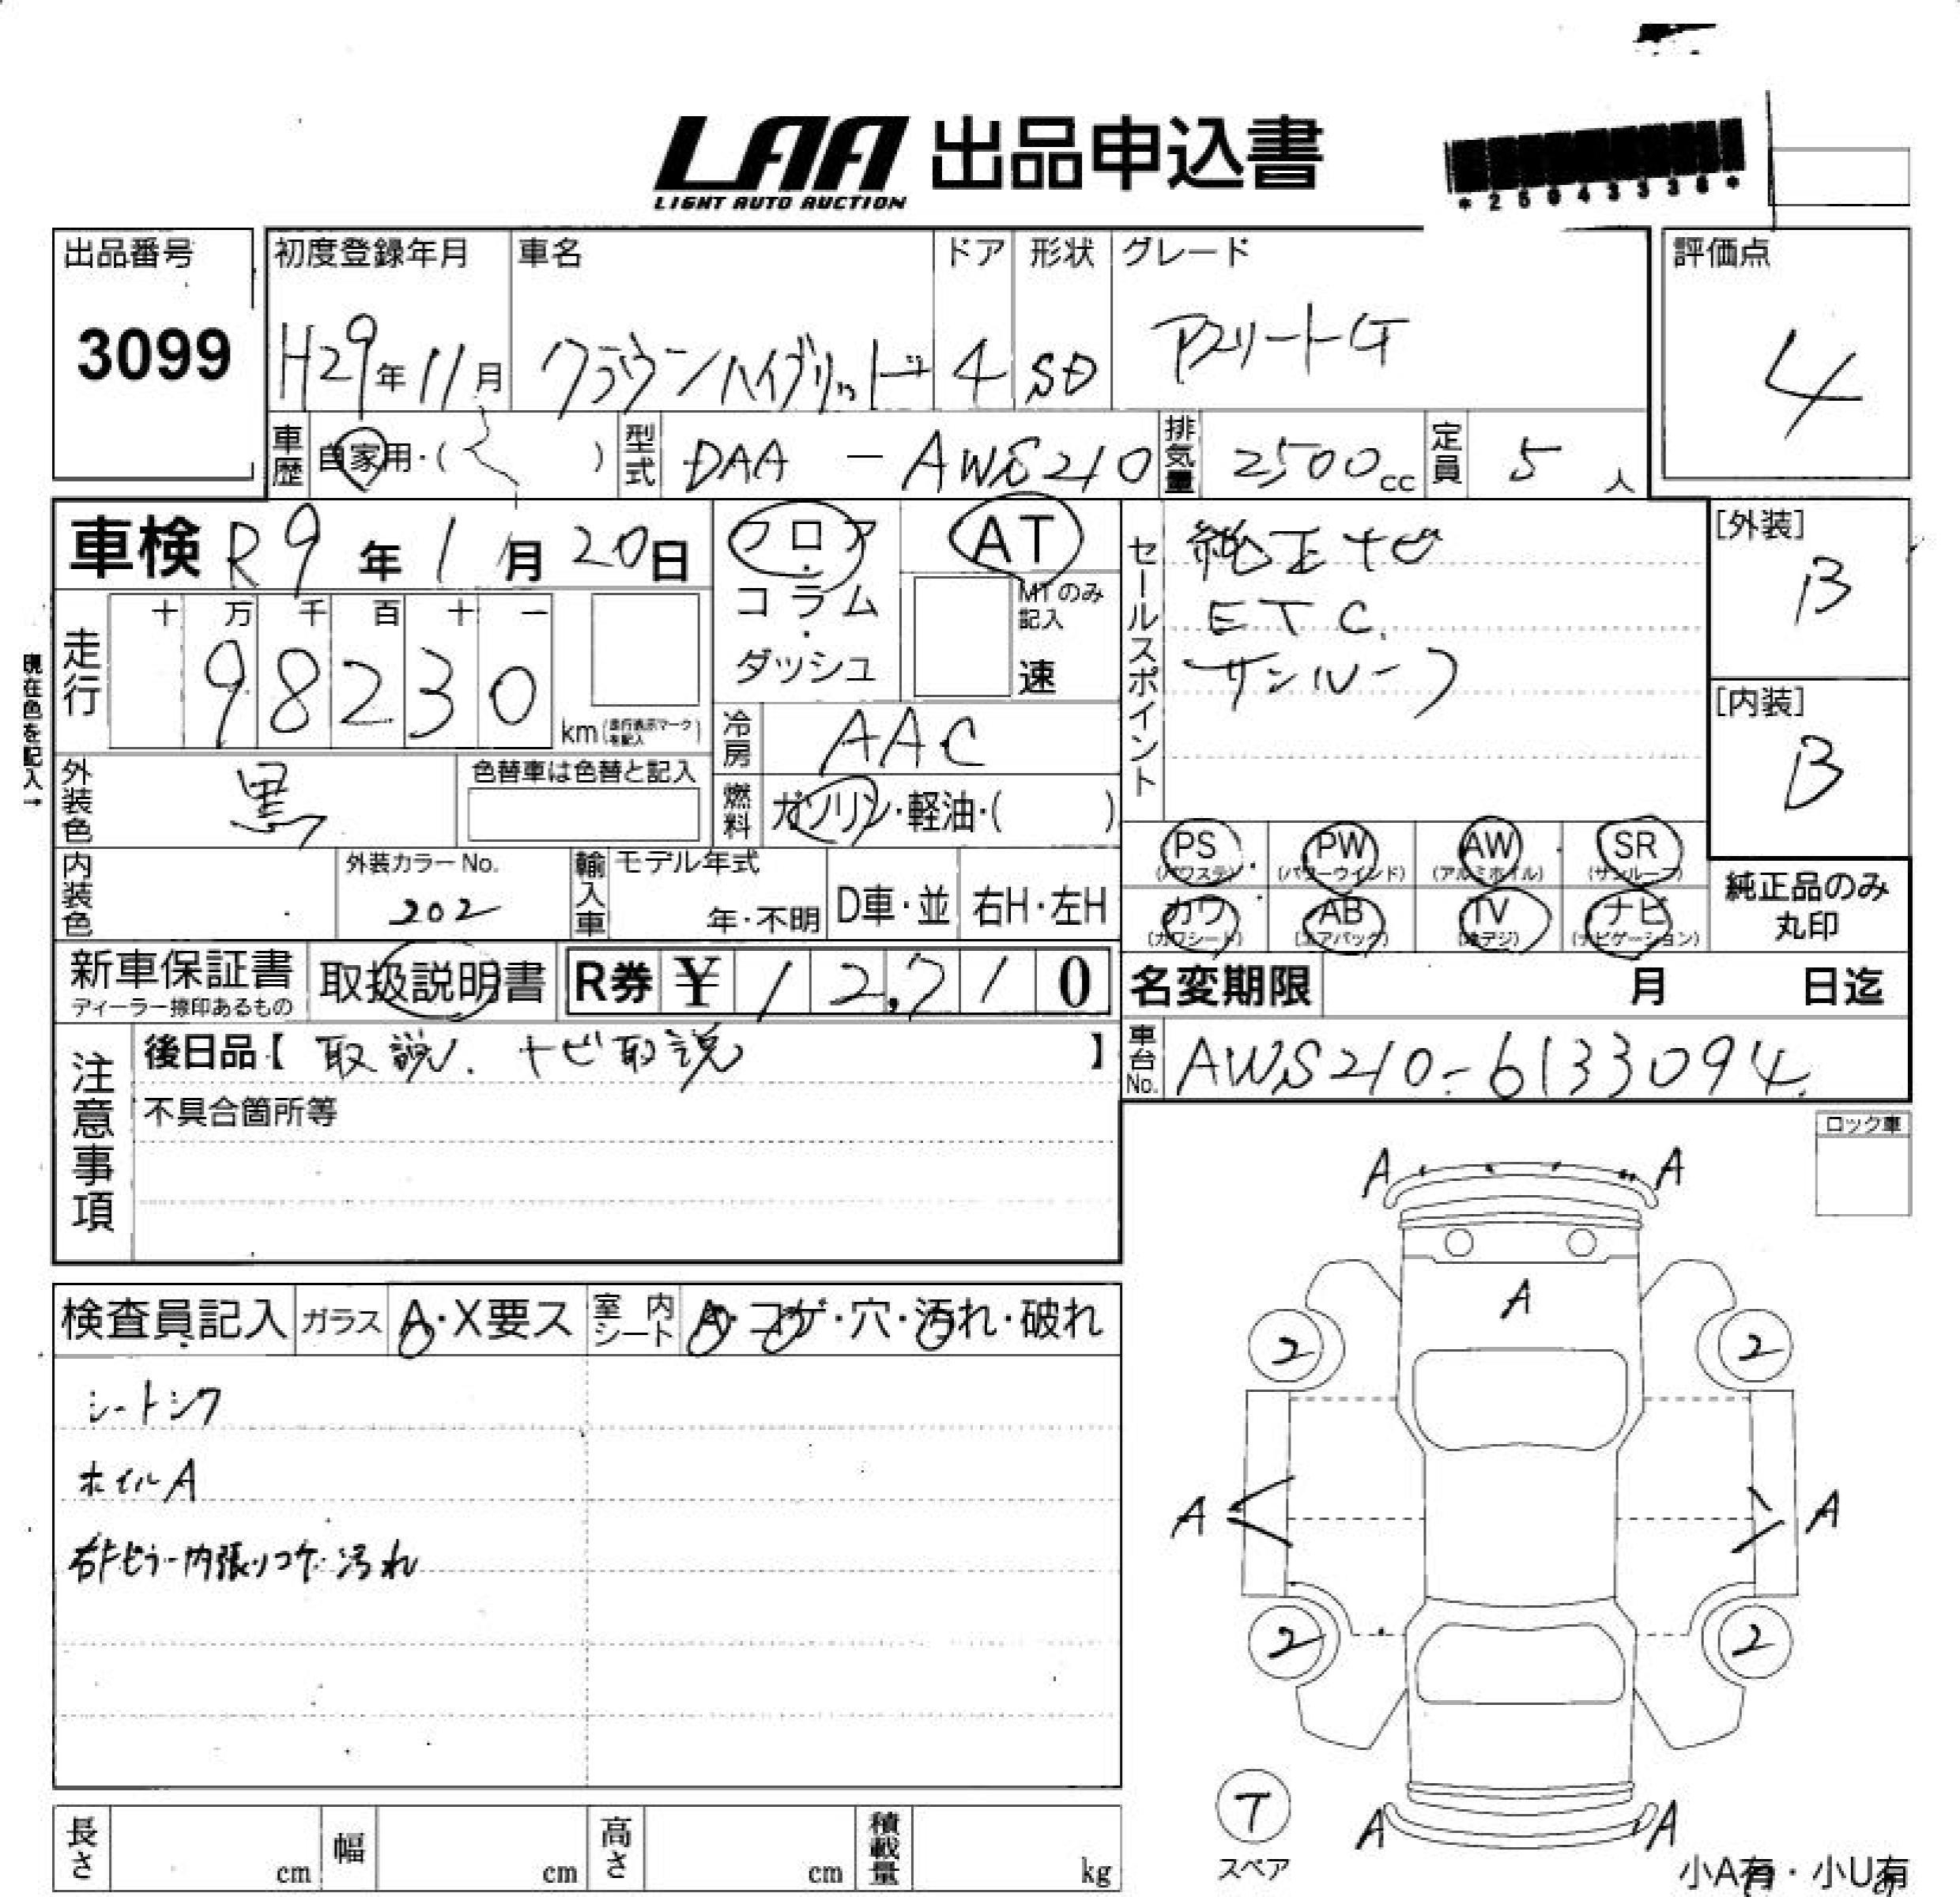 LAA 出品申込書
LIGHT AUTO AUCTION
*25043336*
出品番号
3099
初度登録年月
H29年11月
車名
クラウンハイブリッド
ドア
4
形状
SD
グレード
アスリートG
評価点
4
車歴
自家用・( )
型式
DAA - AWS210
排気量
2500cc
定員
5人
車検 R9年1月20日
フロア・コラム・ダッシュ
AT
MTのみ記入
速
現在色を記入→
走行
十 万 千 百 十 一
98230
km(走行表示マークを記入)
冷房
AAC
燃料
ガソリン・軽油・( )
外装色
黒
色替車は色替と記入
内装色
外装カラーNo.
202
輸入車
モデル年式
年・不明
D車・並
右H・左H
セールスポイント
純正ナビ
ETC.
サンルーフ
[外装]
B
[内装]
B
PS (パワステ)
PW (パワーウインド)
AW (アルミホイル)
SR (サンルーフ)
カワ (カワシート)
AB (エアバッグ)
TV (地デジ)
ナビ (ナビゲーション)
純正品のみ
丸印
新車保証書
ディーラー捺印あるもの
取扱説明書
R券 ¥12,710
名変期限 月 日迄
車台No.
AWS210-6133094
注意事項
後日品【 取説. ナビ取説 】
不具合箇所等
ロック車
検査員記入
ガラス
A・X要ス
室内シート
A・コゲ・穴・汚れ・破れ
シートシワ
ホイルA
内張リコゲ 汚れ
A A
A
2 2
A A
2 2
T
スペア
A A
小A有・小U有
長さ cm
幅 cm
高さ cm
積載量 kg